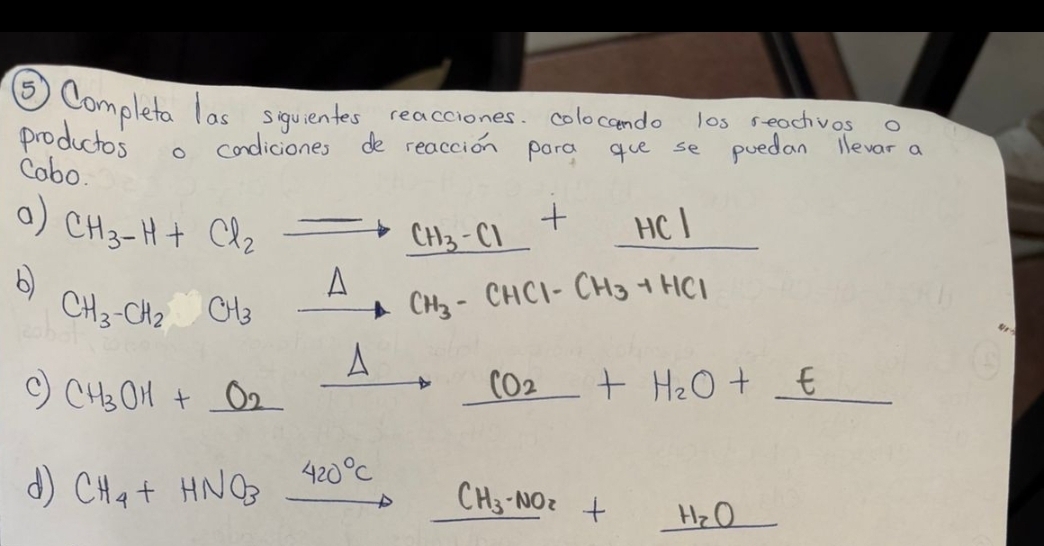 ⑤ Completa las siguientes reacciones. colocando los reactivos o
productos o condiciones de reacción para que se puedan llevar a
Cabo.
a) CH3-H + Cl2 → CH3-Cl + HCl
b) CH3-CH2 CH3 Δ → CH3-CHCl-CH3 + HCl
c) CH3OH + O2 Δ → CO2 + H2O + E
d) CH4 + HNO3 420°C → CH3-NO2 + H2O